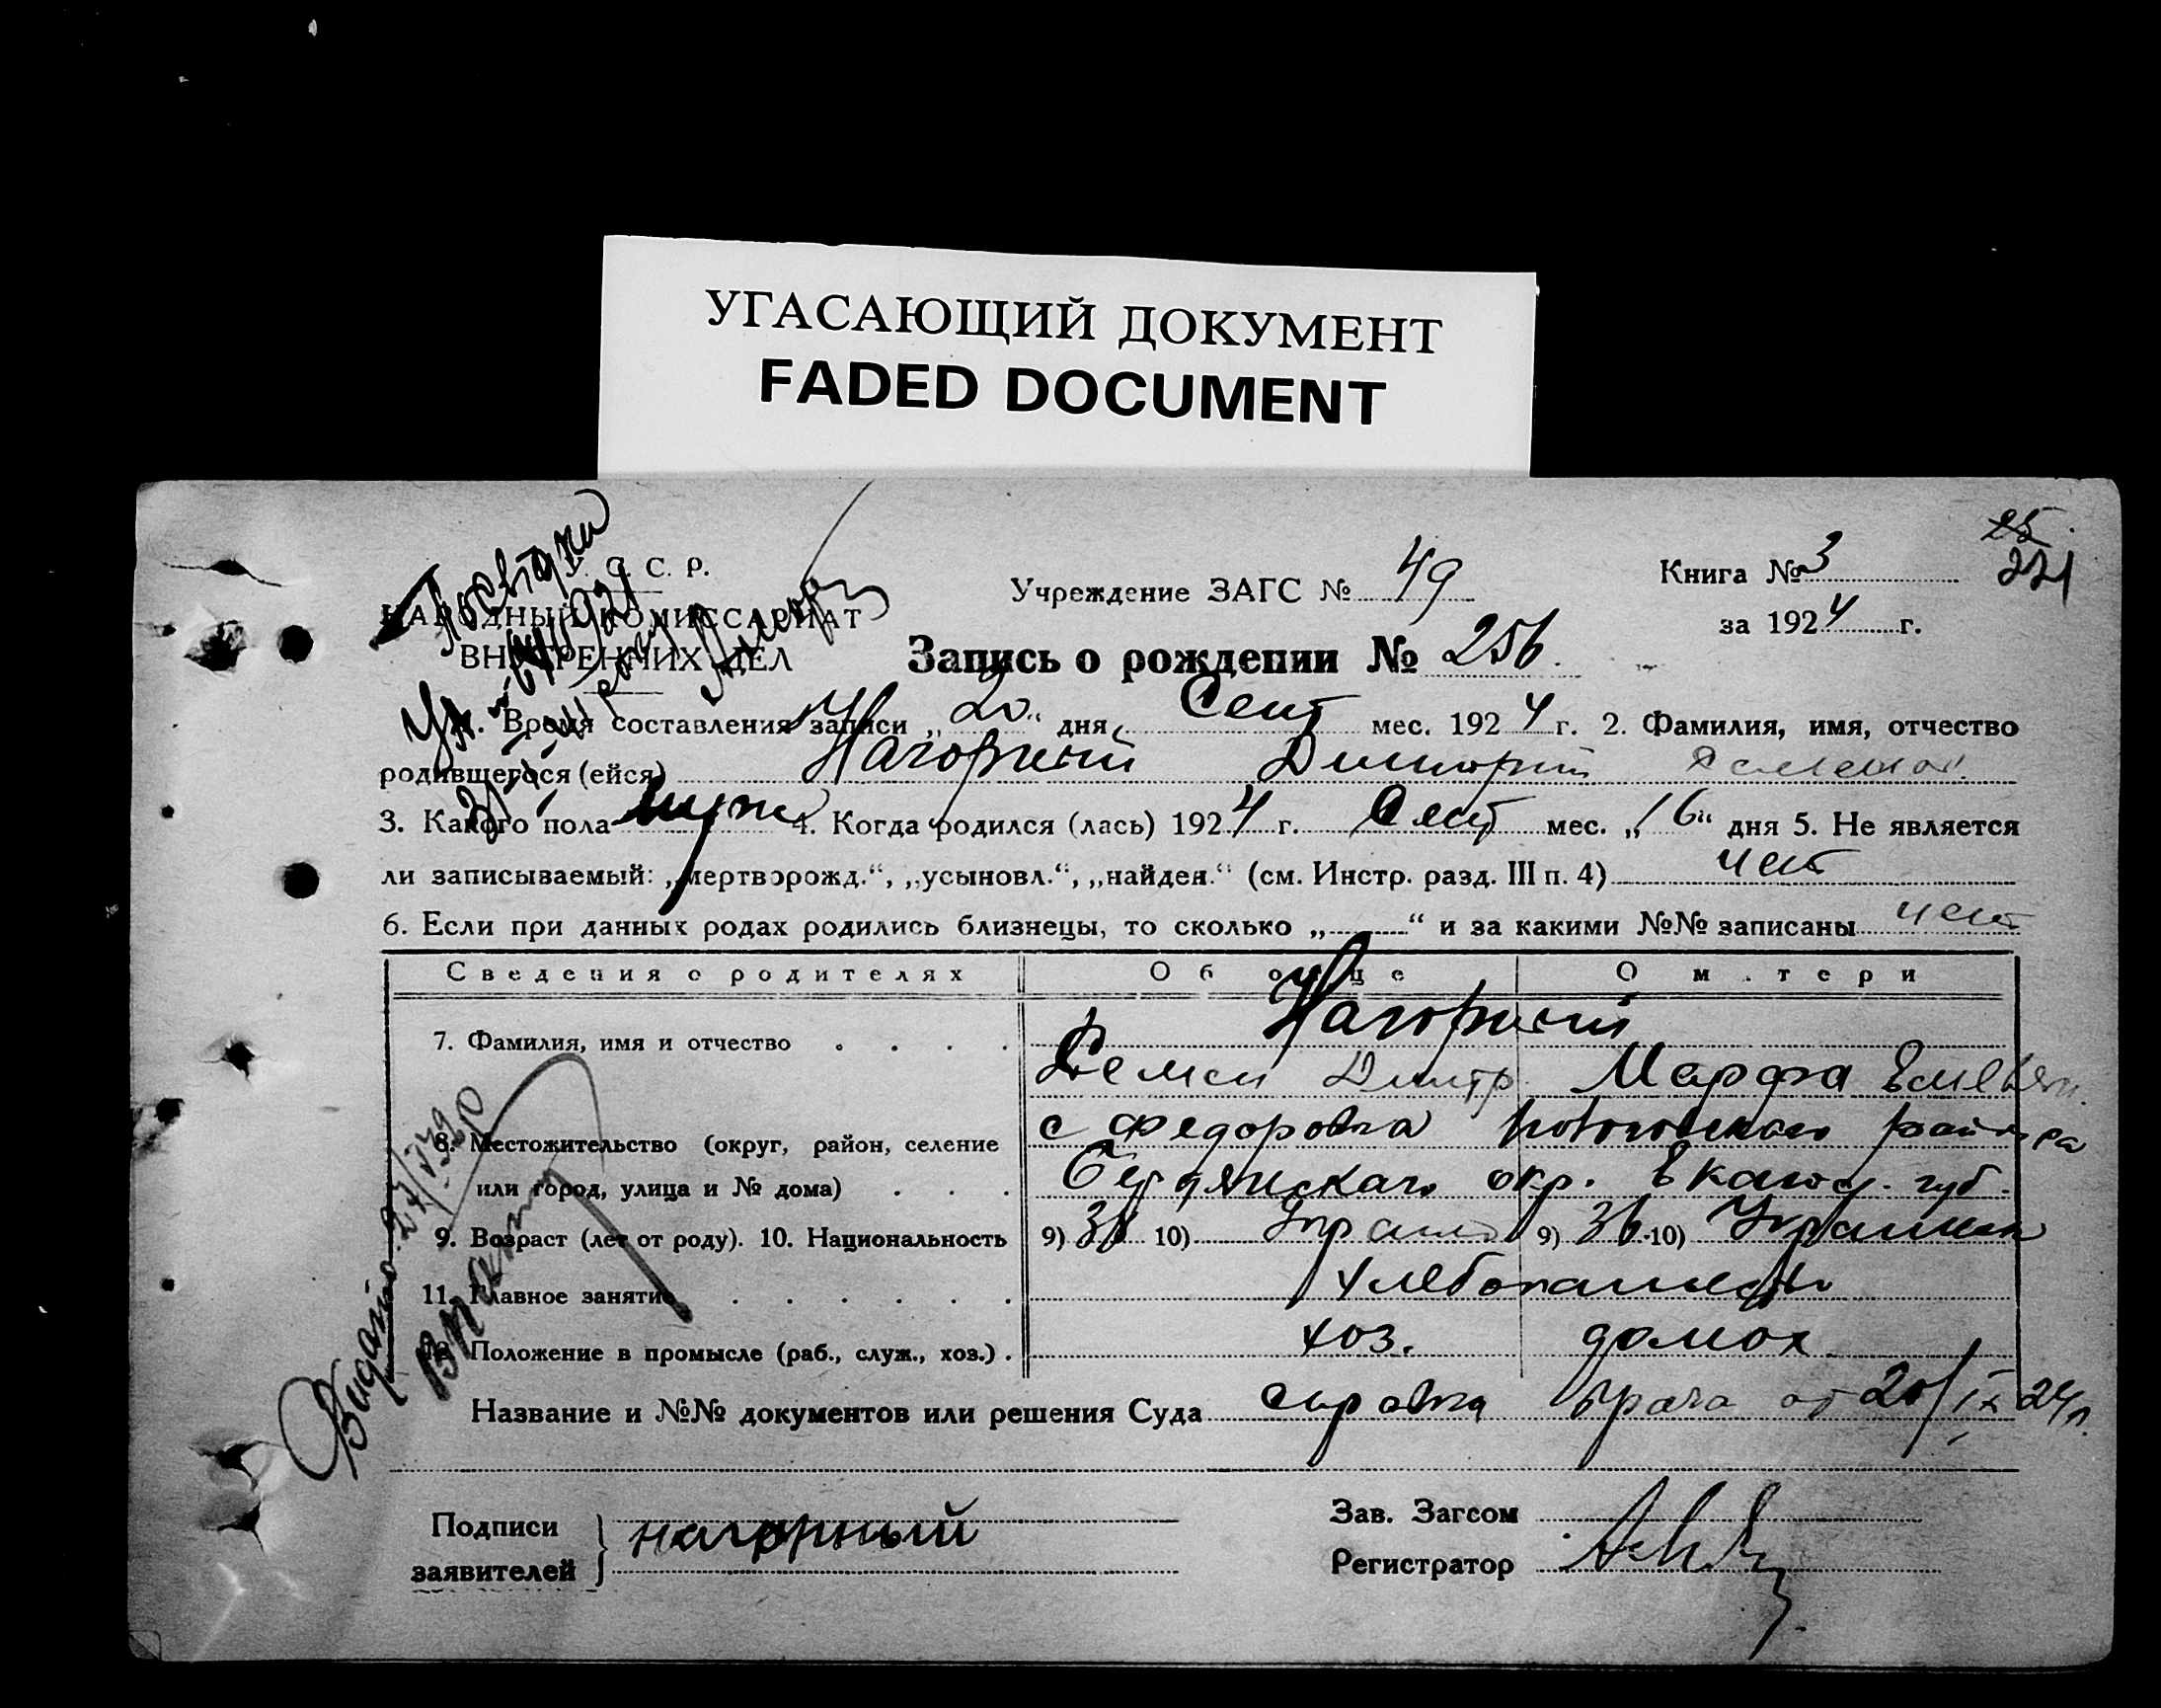 УГАСАЮЩИЙ ДОКУМЕНТ
FADED DOCUMENT
С. С. Р.
НАРОДНЫЙ КОМИССАРИАТ
ВНУТРЕННИХ ДЕЛ
Учреждение ЗАГС № 49
Книга № 3
за 1924 г.
25
221
Запись о рождении № 256.
1. Время составления записи „20“ дня Сент мес. 1924 г. 2. Фамилия, имя, отчество
родившегося (ейся) Нагорный Димитрий Семенов.
3. Какого пола муж 4. Когда родился (лась) 1924 г. Сент мес. „16“ дня 5. Не является
ли записываемый: „мертворожд.“, „усыновл.“, „найден.“ (см. Инстр. разд. III п. 4) нет
6. Если при данных родах родились близнецы, то сколько „ “ и за какими №№ записаны нет
Сведения о родителях Об отце О матери
7. Фамилия, имя и отчество Нагорный
Семен Димтр. Марфа
8. Местожительство (округ, район, селение с Федоровка района
или город, улица и № дома) Бердянскаго окр. Екатер. губ.
9. Возраст (лет от роду). 10. Национальность 9) 10) Украин 9) 36 10) Украинка
11. Главное занятие хлебопашество
12. Положение в промысле (раб., служ., хоз.) хоз. домох
Название и №№ документов или решения Суда справка врача от 20/IX 24 г.
Подписи
заявителей } нагорный
Зав. Загсом
Регистратор